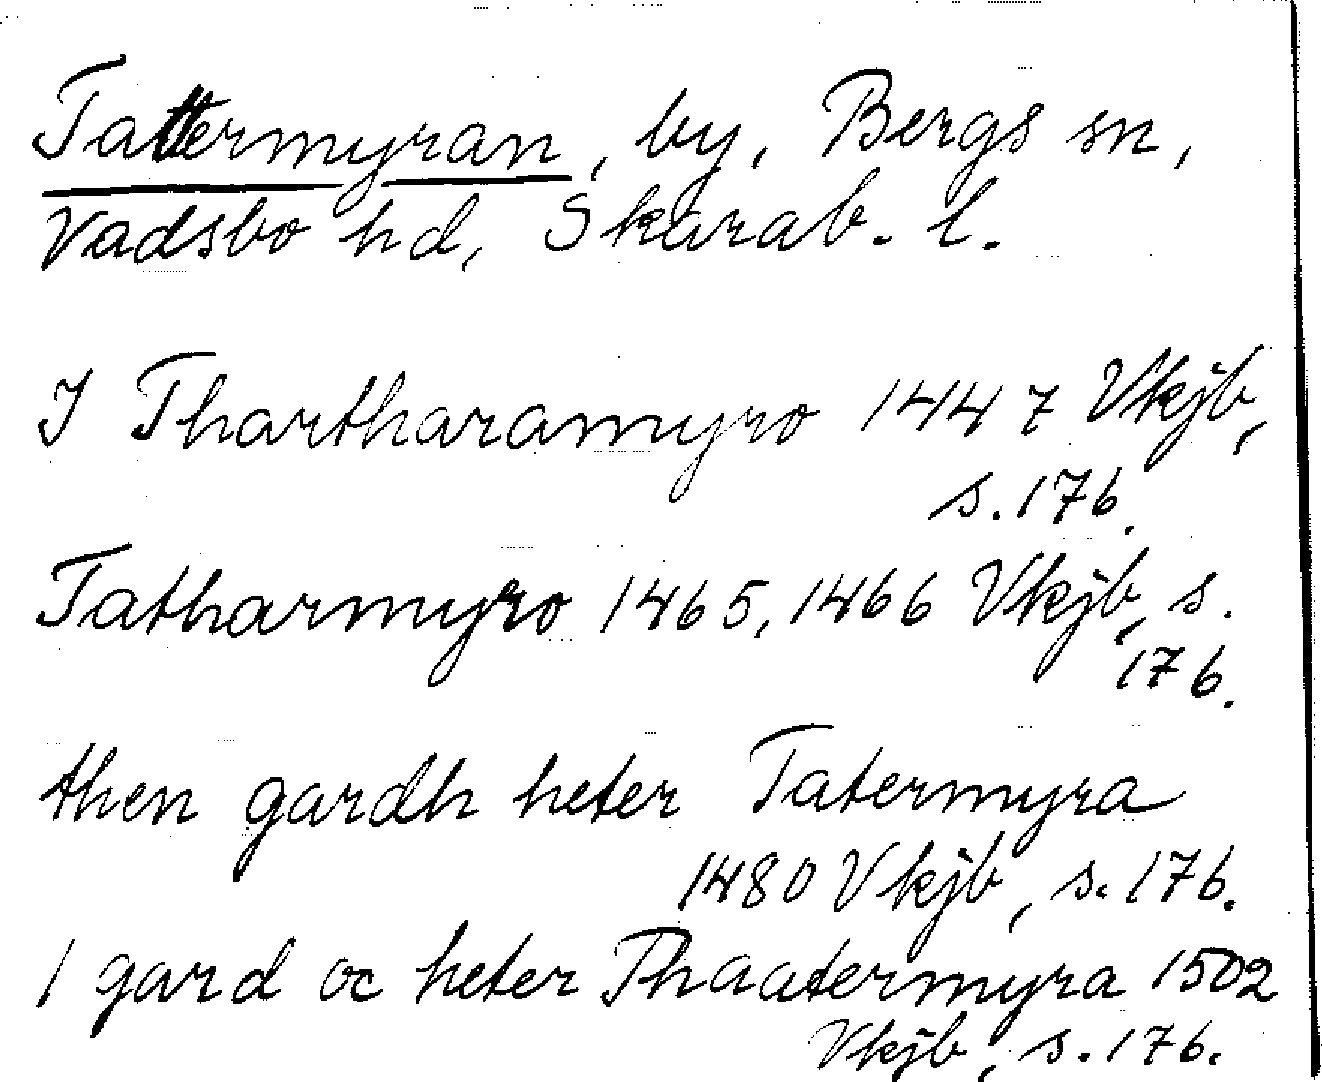 Tattermyran, by, Bergs sn,
Vadsbo hd, Skarab. l.
I Thartharamyro 1447 Vkjb,
s. 176.
Tatharmyro 1465, 1466 Vkjb, s.
176.
then gardh heter Tatermyra
1480 Vkjb, s. 176.
1 gard oc heter Thaatermyra 1502
Vkjb, s. 176.